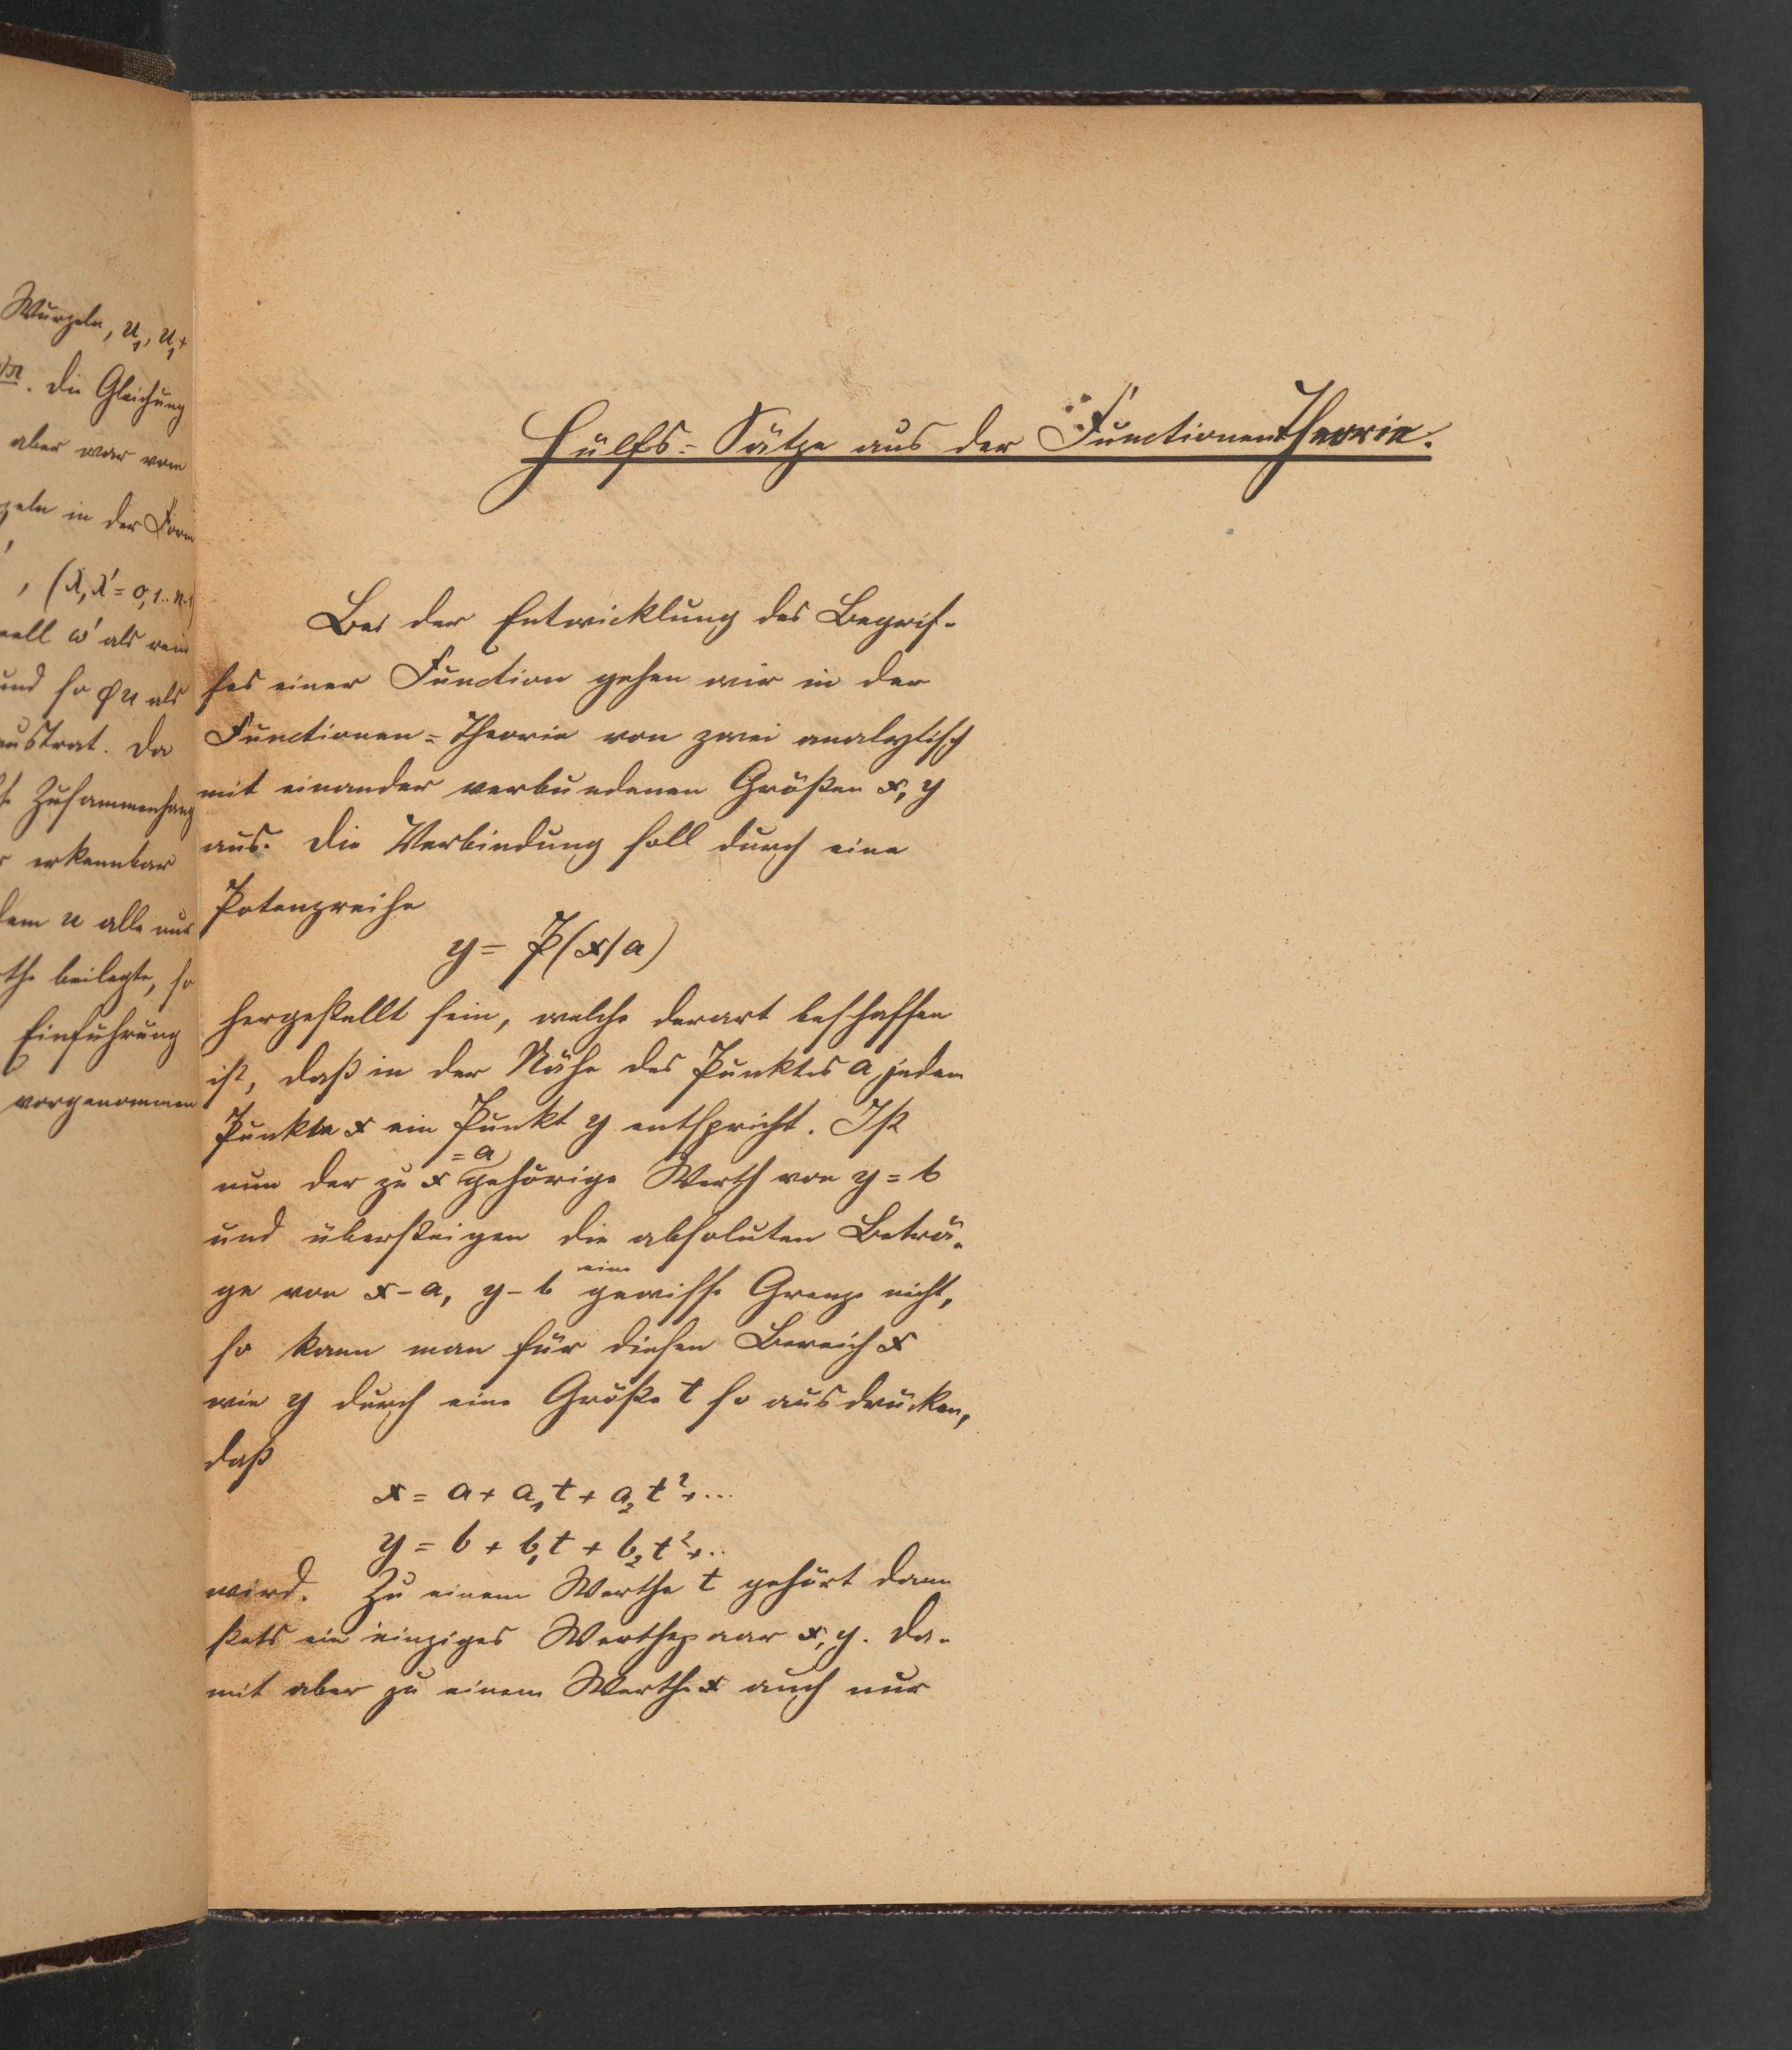 Wurzeln, u₁, u₁+
. Die Gleichung
aber war vom
zeln in der Form
, (λ, λ' = 0, 1 .. n-1)
ω' als rein
und so ℘u als
austrat. Da
Zusammenhang
erkennbar
dem u alle nur
the beilegte, so
Einführung
vorgenommen
Hülfs-Sätze aus der Functionentheorie.
Bei der Entwicklung des Begrif-
fes einer Function gehen wir in der
Functionen-Theorie von zwei analytisch
mit einander verbundenen Größen x, y
aus. Die Verbindung soll durch eine
Potenzreihe
y = P(x/a)
hergestellt sein, welche derart beschaffen
ist, daß in der Nähe des Punktes a jedem
Punkte x ein Punkt y entspricht. Ist
nun der zu x = a gehörige Werth von y = b
und übersteigen die absoluten Beträ-
ge von x - a, y - b eine gewisse Grenze nicht,
so kann man für diesen Bereich x
wie y durch eine Größe t so ausdrücken,
daß
x = a + a₁t + a₂t² + ...
y = b + b₁t + b₂t² + ..
wird. Zu einem Werthe t gehört dann
stets ein einziges Werthepaar x, y. Da-
mit aber zu einem Werthe x auch nur